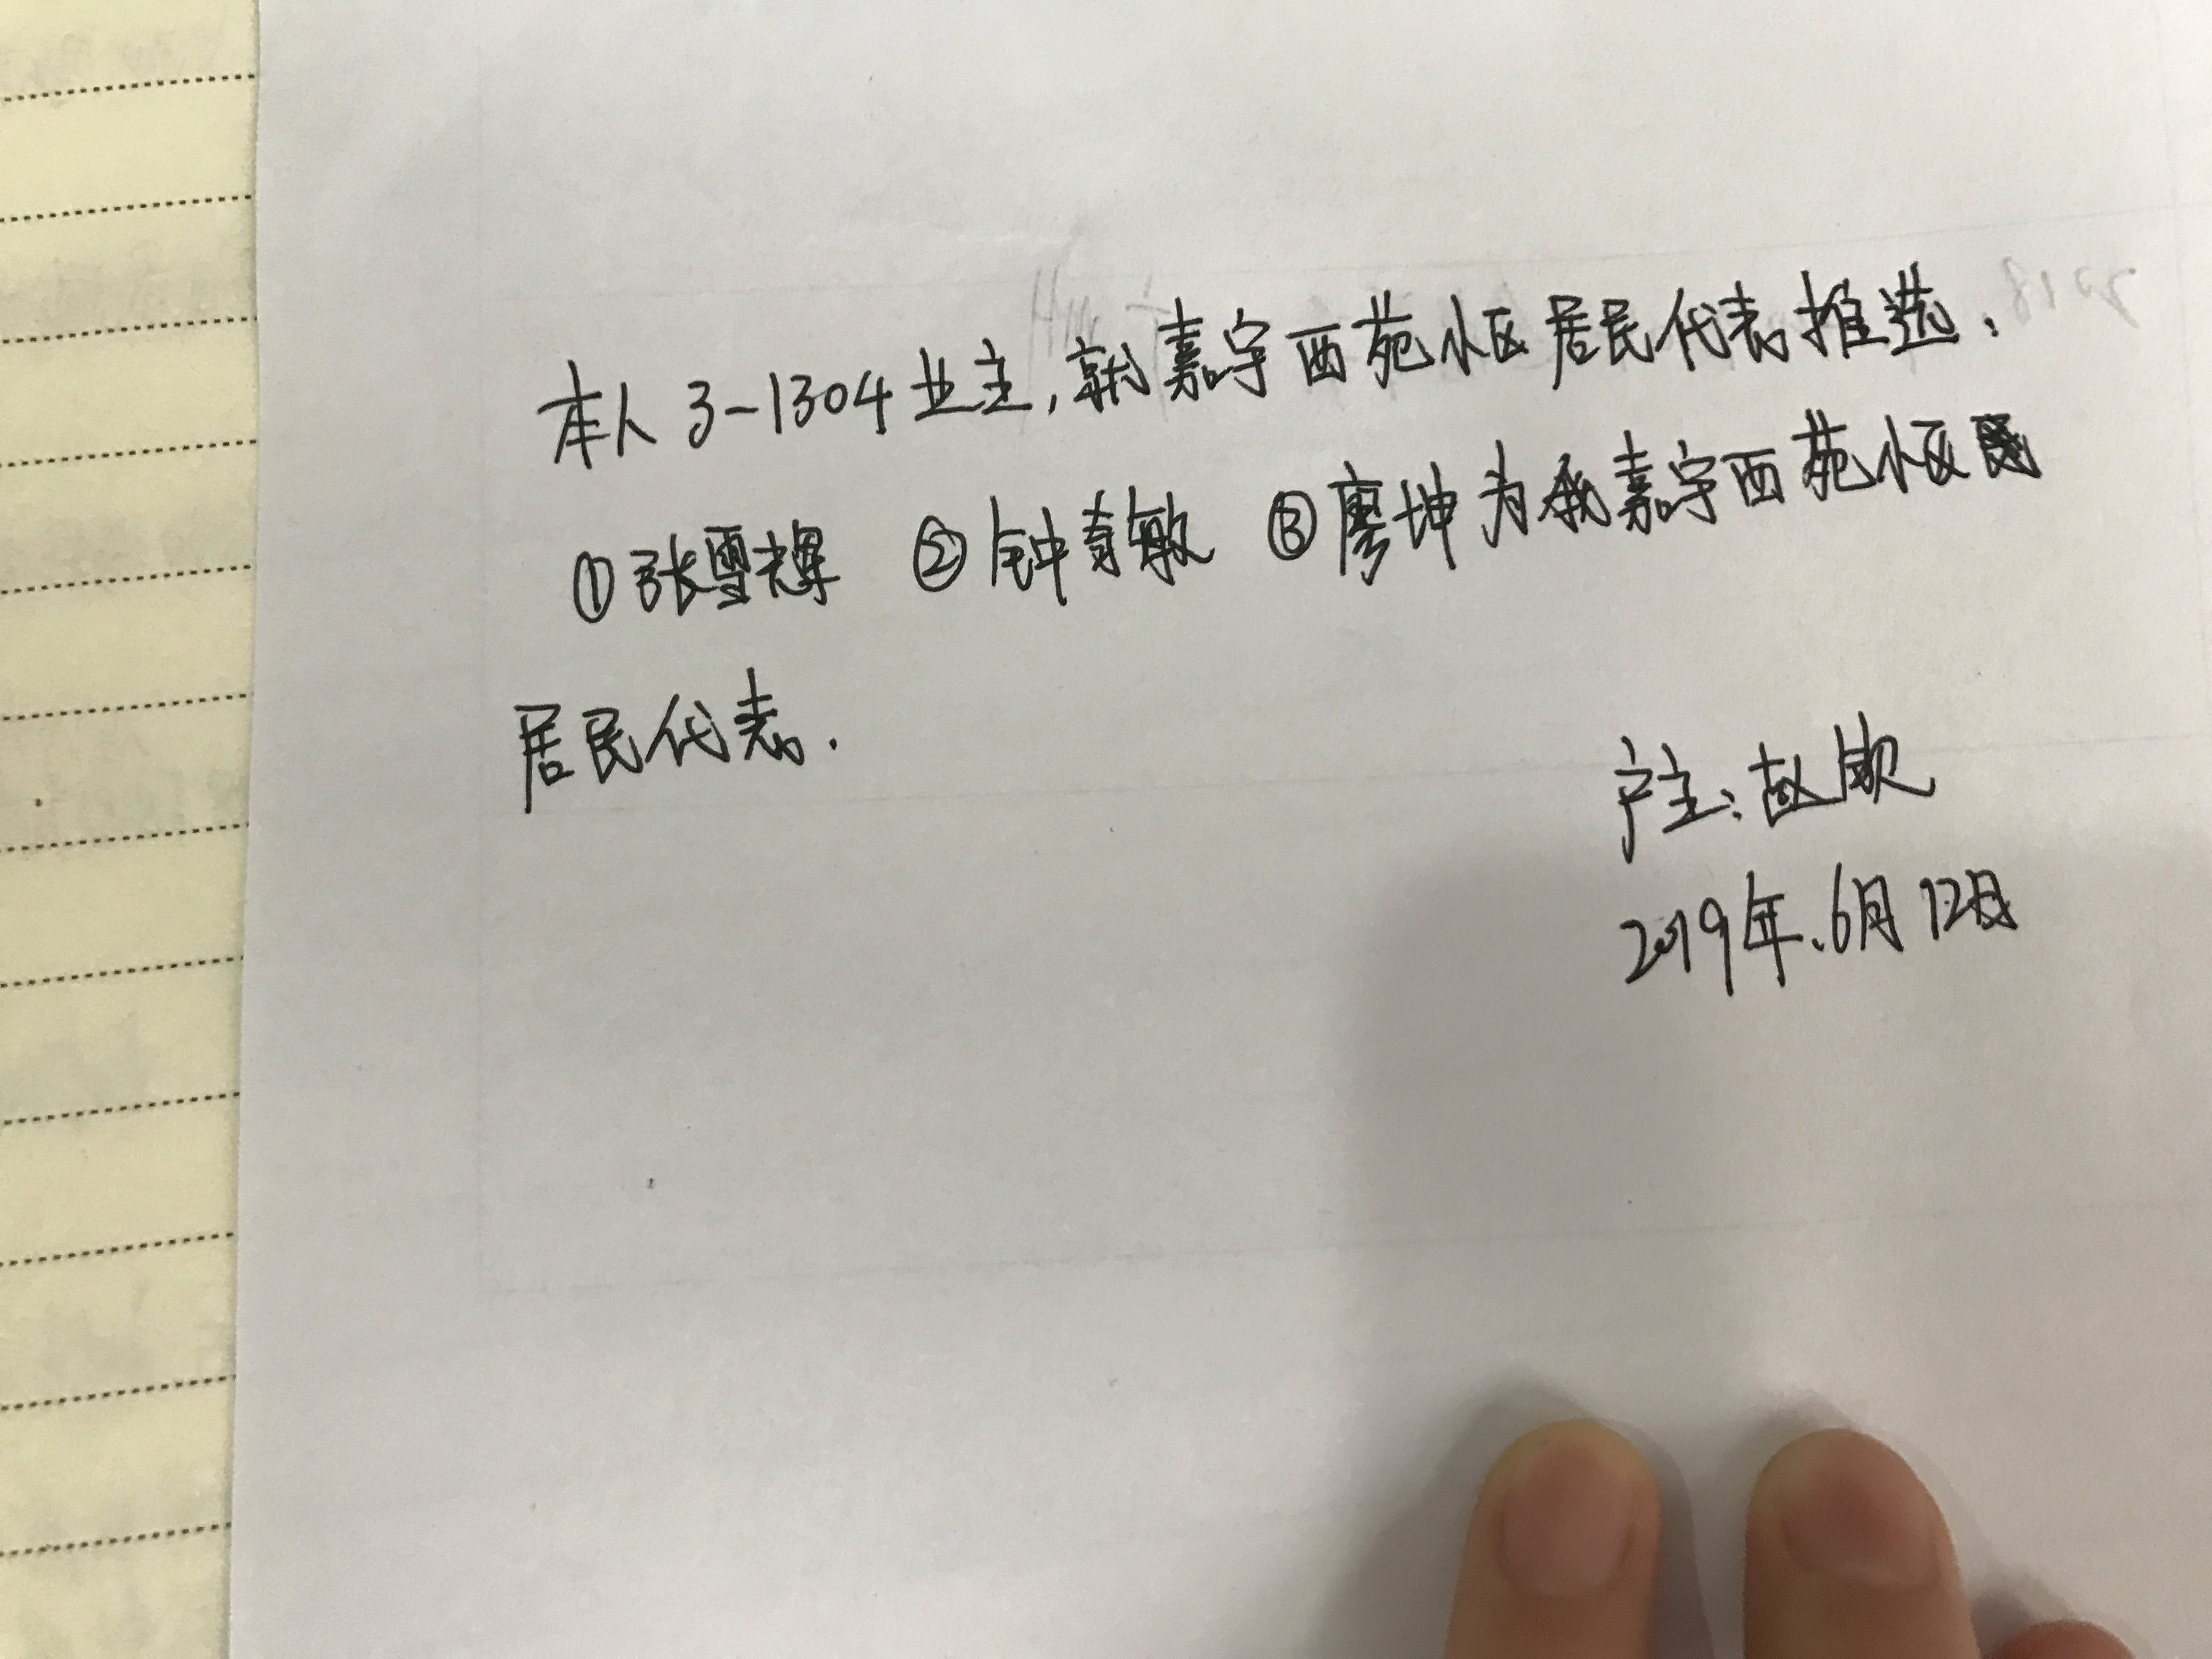 本人3-1304业主,就嘉宇西苑小区居民代表推选:
①张雪辉 ②钟育敏 ③廖坤为我嘉宇西苑小区
居民代表.
户主:赵欣
2019年.6月12日